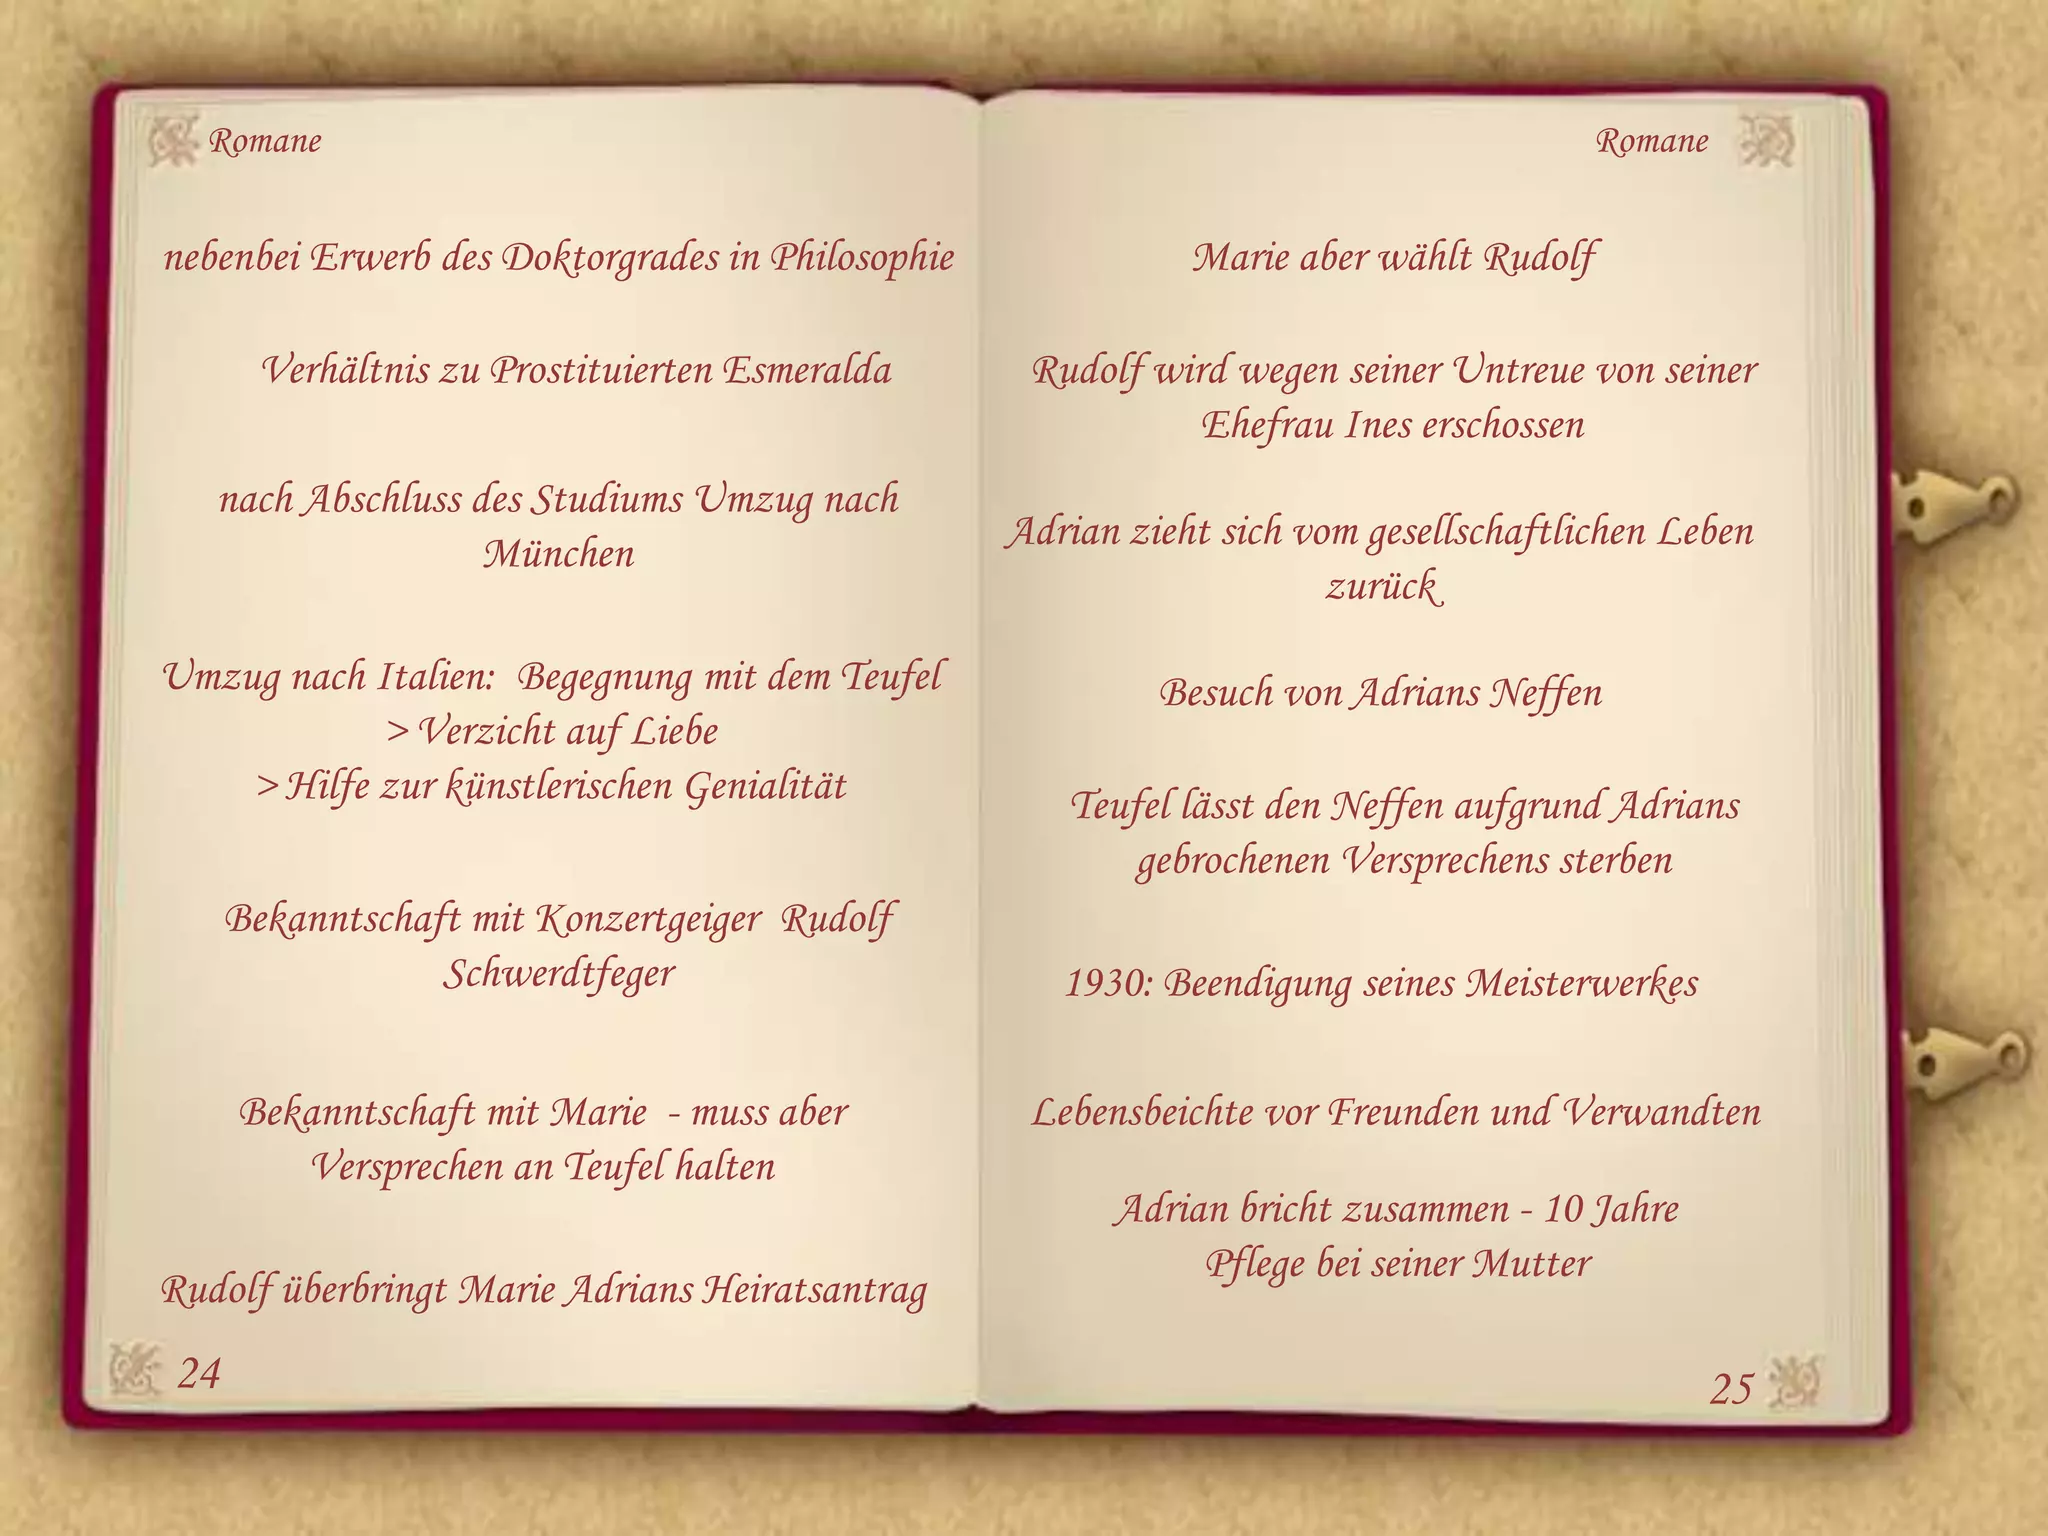 Romane
nebenbei Erwerb des Doktorgrades in Philosophie
Verhältnis zu Prostituierten Esmeralda
nach Abschluss des Studiums Umzug nach
München
Umzug nach Italien: Begegnung mit dem Teufel
> Verzicht auf Liebe
> Hilfe zur künstlerischen Genialität
Bekanntschaft mit Konzertgeiger Rudolf
Schwerdtfeger
Bekanntschaft mit Marie - muss aber
Versprechen an Teufel halten
Rudolf überbringt Marie Adrians Heiratsantrag
24
Romane
Marie aber wählt Rudolf
Rudolf wird wegen seiner Untreue von seiner
Ehefrau Ines erschossen
Adrian zieht sich vom gesellschaftlichen Leben
zurück
Besuch von Adrians Neffen
Teufel lässt den Neffen aufgrund Adrians
gebrochenen Versprechens sterben
1930: Beendigung seines Meisterwerkes
Lebensbeichte vor Freunden und Verwandten
Adrian bricht zusammen - 10 Jahre
Pflege bei seiner Mutter
25